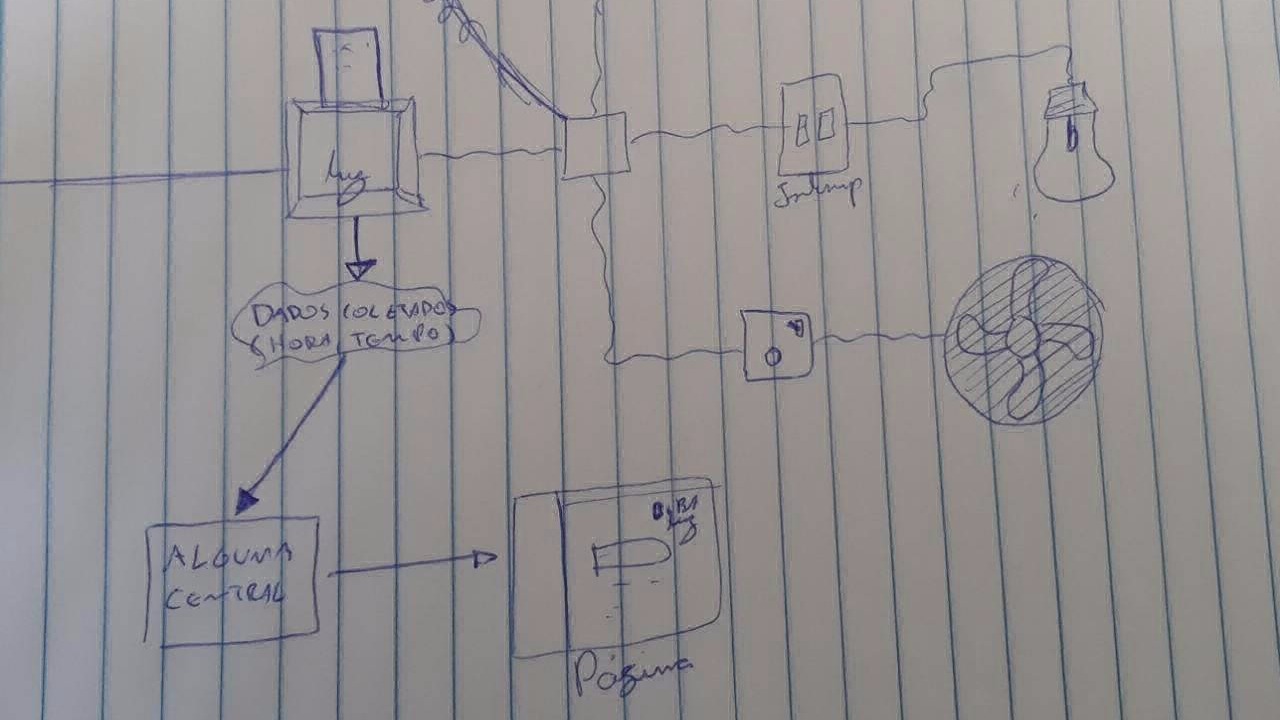 luz
Interrup
DADOS COLETADOS
(HORA TEMPO)
ALGUMA
CENTRAL
Página